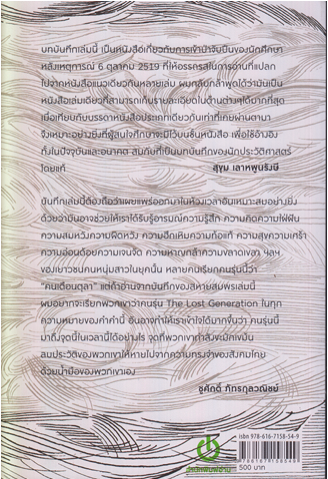 บทบันทึกเล่มนี้ เป็นหนังสือเกี่ยวกับการเข้าป่าจับปืนของนักศึกษา
หลังเหตุการณ์ 6 ตุลาคม 2519 ที่ให้อรรถรสในการอ่านที่แปลก
ไปจากหนังสือแนวเดียวกันหลายเล่ม ผมกล้าพูดได้ว่ามันเป็น
หนังสือเล่มเดียวที่สามารถเก็บรายละเอียดในด้านต่างๆ ได้มากที่สุด
เมื่อเทียบกับบรรดาหนังสือประเภทเดียวกันเท่าที่เคยผ่านตามา
จึงเหมาะอย่างยิ่งที่ผู้สนใจศึกษาจะมีไว้บนชั้นหนังสือ เพื่อใช้อ้างอิง
ทั้งในปัจจุบันและอนาคต สมกับที่เป็นบทบันทึกของนักประวัติศาสตร์
โดยแท้
สุขุม เลาหพูนรังษี
บันทึกเล่มนี้ต้องถือว่าเผยแพร่ออกมาในห้วงเวลาอันเหมาะสมอย่างยิ่ง
ด้วยว่ามันอาจช่วยให้เราได้รับรู้อารมณ์ความรู้สึก ความคิดความใฝ่ฝัน
ความสมหวังความผิดหวัง ความฮึกเหิมความท้อแท้ ความสุขความเศร้า
ความอ่อนด้อยความเจนจัด ความหาญกล้าความขลาดเขลา ฯลฯ
ของเยาวชนคนหนุ่มสาวในยุคนั้น หลายคนเรียกคนรุ่นนี้ว่า
“คนเดือนตุลา” แต่ถ้าอ่านจากบันทึกของสหายสมพรเล่มนี้
ผมอยากจะเรียกพวกเขาว่าคนรุ่น The Lost Generation ในทุก
ความหมายของคำคำนี้ อันอาจทำให้เราเข้าใจได้มากขึ้นว่า คนรุ่นนี้
มาถึงจุดนี้ในเวลานี้ได้อย่างไร จุดที่พวกเขากำลังขะมักเขม้น
ลบประวัติของพวกเขาให้หายไปจากความทรงจำของสังคมไทย
ด้วยน้ำมือของพวกเขาเอง
ชูศักดิ์ ภัทรกุลวณิชย์
ISBN 978-616-7158-54-9
9 786167 158549
500 บาท
สำนักพิมพ์อ่าน